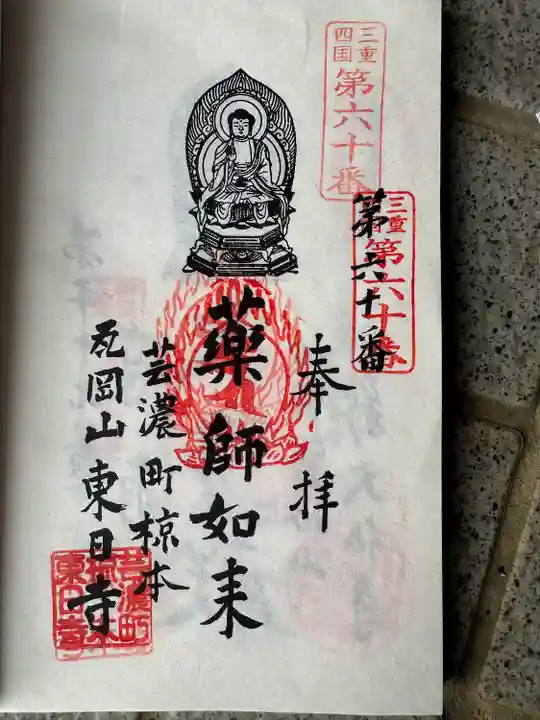 三重
四国
第六十番
三重
第六十番
第六十番
奉拝
薬師如来
芸濃町椋本
瓦岡山東日寺
芸濃町
椋本
東日寺